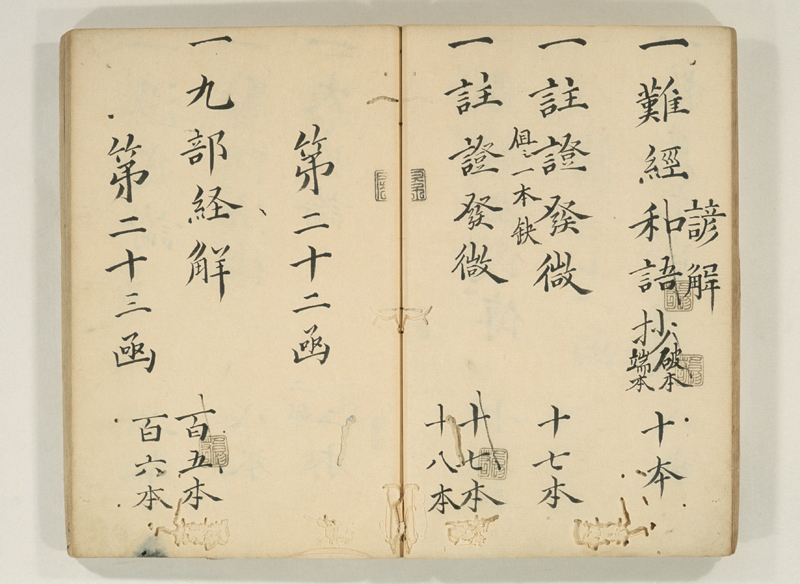 一難經和語抄 十本
諺解
破本
端本
一註證發微 十七本
但シ一本缺
一註證發微 十七本
十八本
第二十二函
一九部経解 百五本
百六本
第二十三函